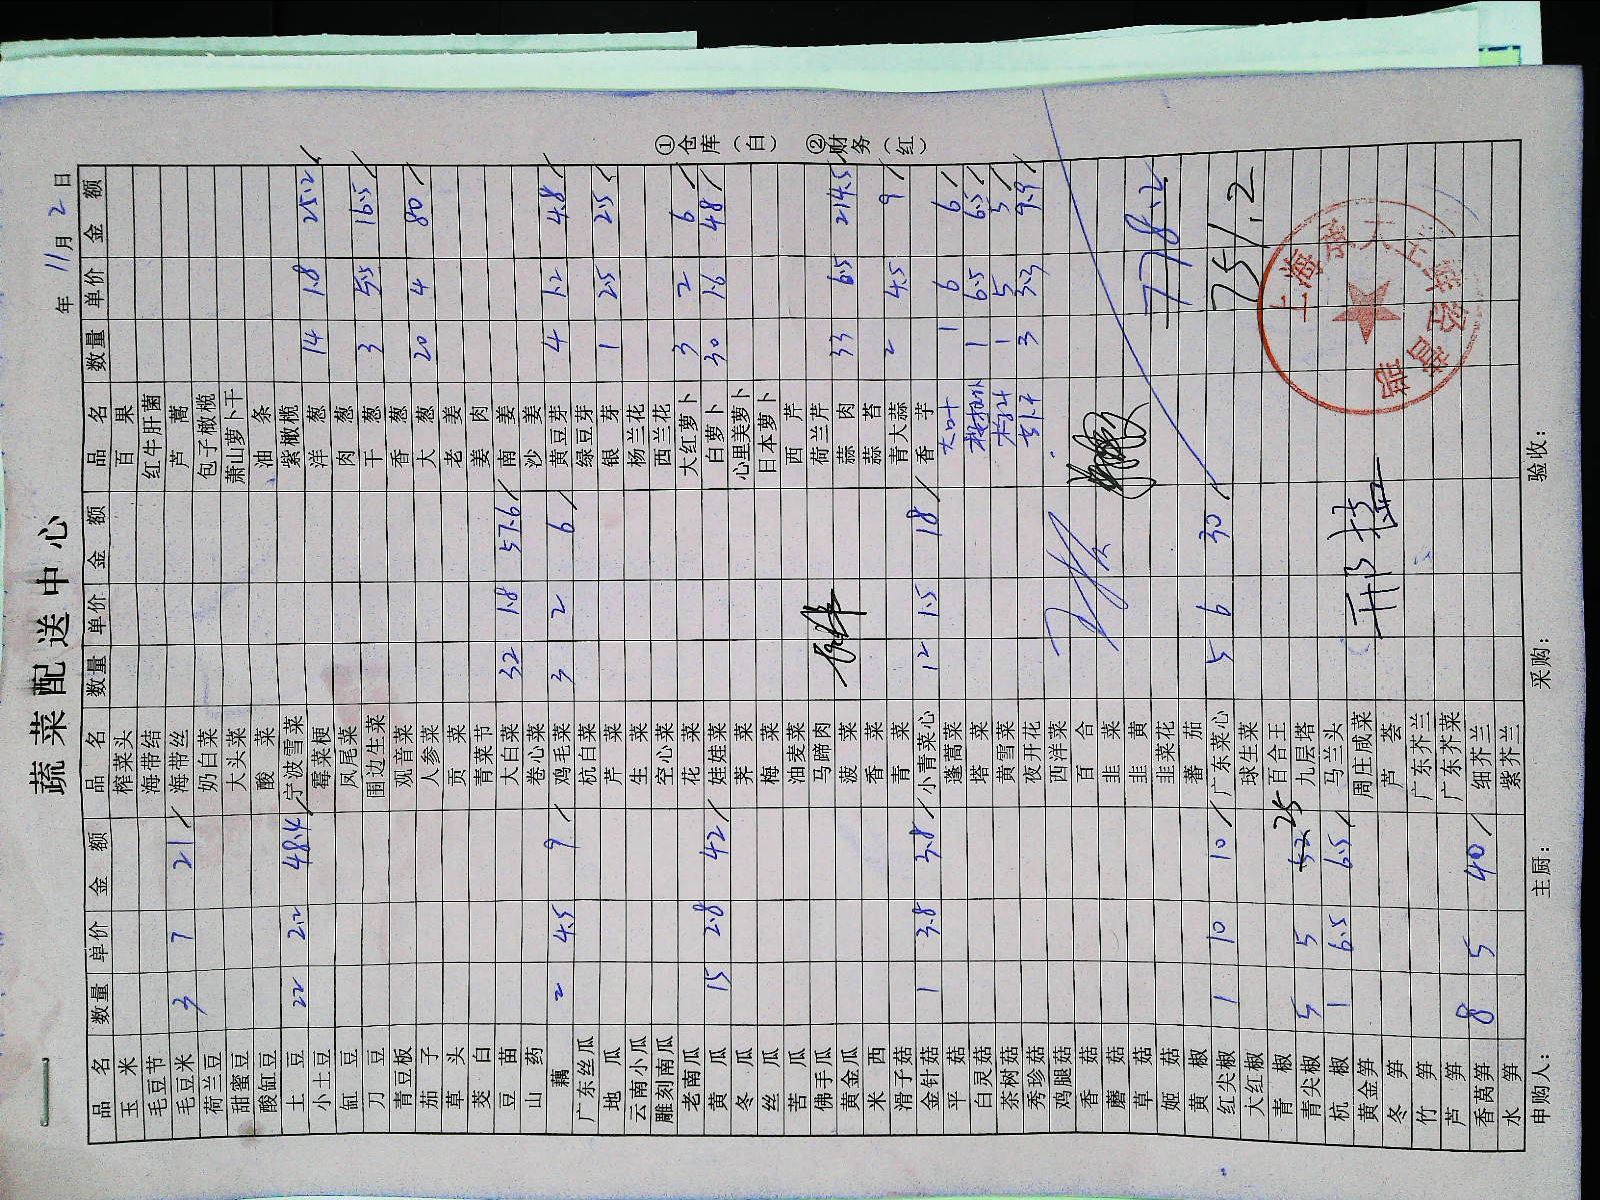 蔬菜配送中心
年 11月 2日
品名 数量 单价 金额 品名 数量 单价 金额 品名 数量 单价 金额
玉米 榨菜头 百果
毛豆节 海带结 红牛肝菌
毛豆米 3 7 21 海带丝 芦蒿
荷兰豆 奶白菜 包子橄榄
甜蜜豆 大头菜 萧山萝卜干
酸缸豆 酸菜 油条
土豆 22 2.2 48.4 宁波雪菜 紫橄榄
小土豆 霉菜梗 洋葱 14 1.8 25.2
缸豆 凤尾菜 肉葱
刀豆 围边生菜 干葱 3 5.5 16.5
青豆板 观音菜 香葱
茄子 人参菜 大葱 20 4 80
草头 贡菜 老姜
茭白 青菜节 姜肉
豆苗 大白菜 32 1.8 57.6 南姜
山药 卷心菜 沙姜
藕 2 4.5 9 鸡毛菜 3 2 6 黄豆芽 4 1.2 4.8
广东丝瓜 杭白菜 绿豆芽
地瓜 芹菜 银芽 1 2.5 2.5
云南小瓜 生菜 杨兰花
雕刻南瓜 空心菜 西兰花
老南瓜 花菜 大红萝卜 3 2 6
黄瓜 15 2.8 42 娃娃菜 白萝卜 30 1.6 48
冬瓜 荠菜 心里美萝卜
丝瓜 梅菜 日本萝卜
苦瓜 油麦菜 西芹
佛手瓜 马蹄肉 荷兰芹
黄金瓜 菠菜 蒜肉 33 6.5 214.5
米西 香菜 蒜苔
滑子菇 青菜 青大蒜 2 4.5 9
金针菇 1 3.8 3.8 小青菜心 12 1.5 18 香芋
平菇 蓬蒿菜 1 6 6
白灵菇 塔菜 1 6.5 6.5
茶树菇 黄雪菜 1 5 5
秀珍菇 夜开花 3 3.3 9.9
鸡腿菇 西洋菜
香菇 百合
蘑菇 韭菜
草菇 韭黄
姬菇 韭菜花 778.2
黄椒 蕃茄
红尖椒 1 10 10 广东菜心 5 6 30 751.2
大红椒 球生菜
青椒 百合王
青尖椒 5 5 52 25 九层塔
杭椒 1 6.5 6.5 马兰头
黄金笋 周庄咸菜
冬笋 芦荟
竹笋 广东芥兰
芦笋 广东芥菜
香莴笋 8 5 40 细芥兰
水笋 紫芥兰
申购人： 主厨： 采购： 验收：
①仓库（白） ②财务（红）